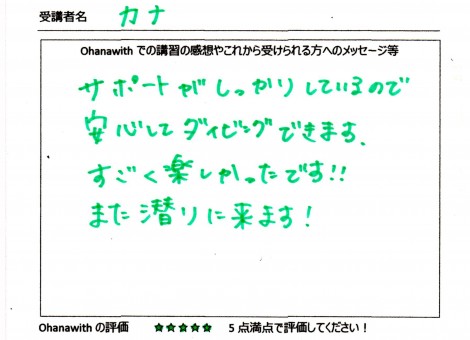 受講者名 カナ
Ohanawith での講習の感想やこれから受けられる方へのメッセージ等
サポートがしっかりしているので
安心してダイビングできます.
すごく楽しかったです!!
また潜りに来ます!
Ohanawith の評価 ★★★★★ 5 点満点で評価してください！